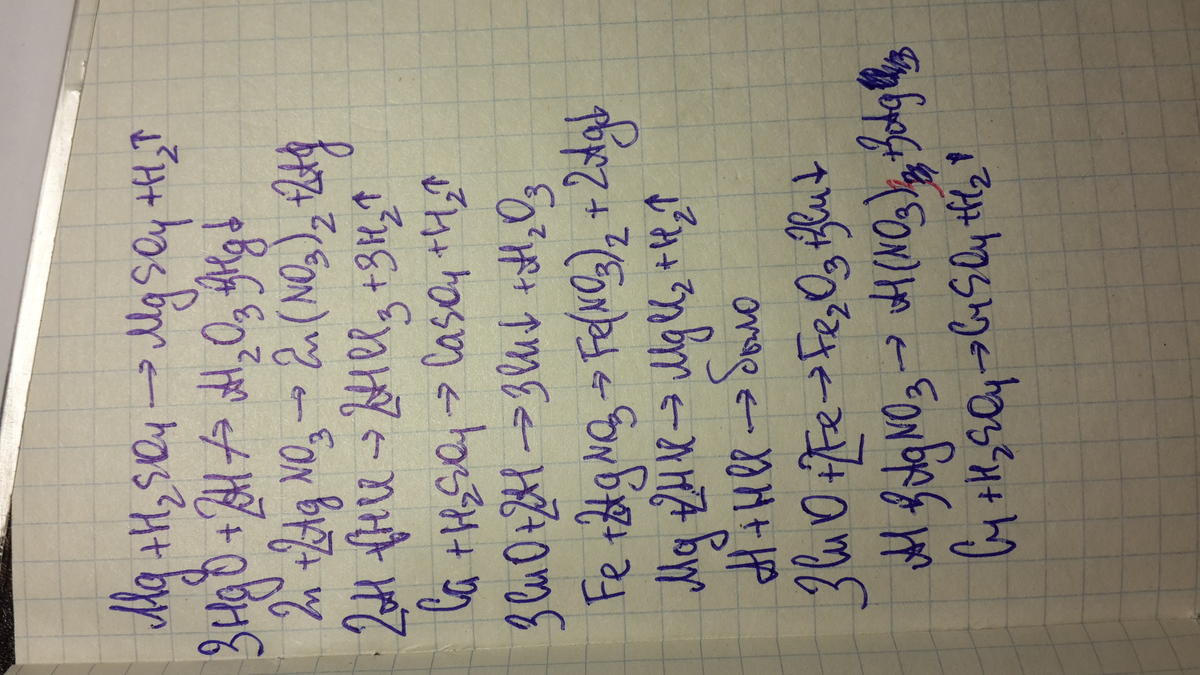 Mg + H₂SO₄ → MgSO₄ + H₂↑
3HgO + 2Al → Al₂O₃ + 3Hg↓
Zn + 2AgNO₃ → Zn(NO₃)₂ + 2Ag
2Al + 6HCl → 2AlCl₃ + 3H₂↑
Ca + H₂SO₄ → CaSO₄ + H₂↑
3CuO + 2Al → 3Cu↓ + Al₂O₃
Fe + 2AgNO₃ → Fe(NO₃)₂ + 2Ag↓
Mg + 2HCl → MgCl₂ + H₂↑
Al + HCl → было
3CuO + 2Fe → Fe₂O₃ + 3Cu↓
Al + 3AgNO₃ → Al(NO₃)₃ + 3Ag
Cr + H₂SO₄ → CrSO₄ + H₂↑